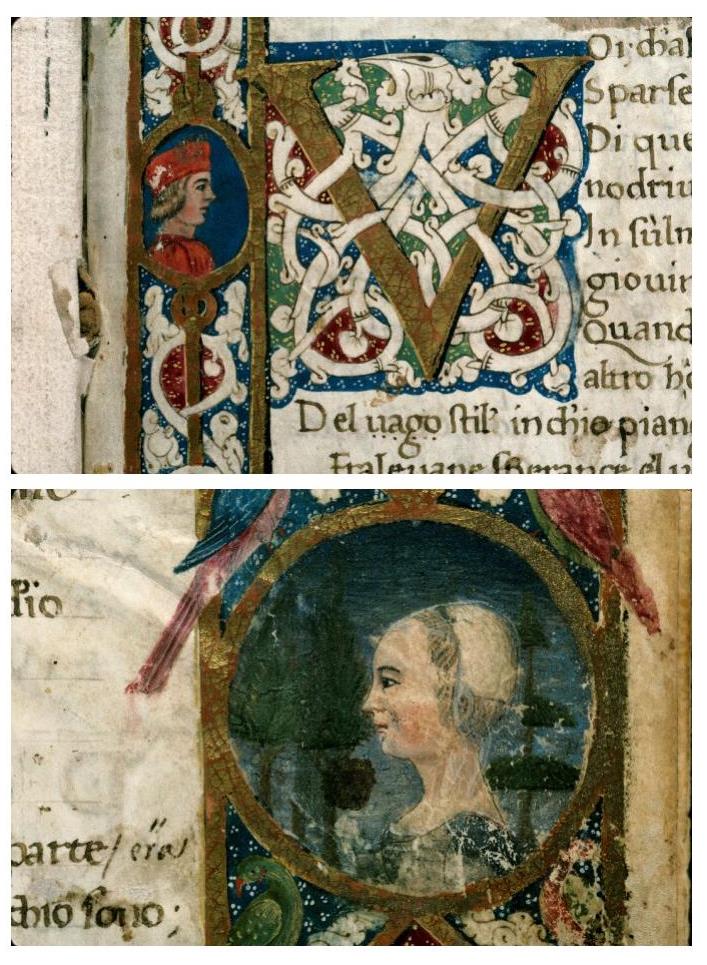 V
Oi; ch'as
Sparse
Di que
nodriu
In su'l m
giouin
Quand
altro ho
Del uago stil' in ch'io pian
Fra le uane speranze e'l u
dio
parte / era
ch'io sono ;